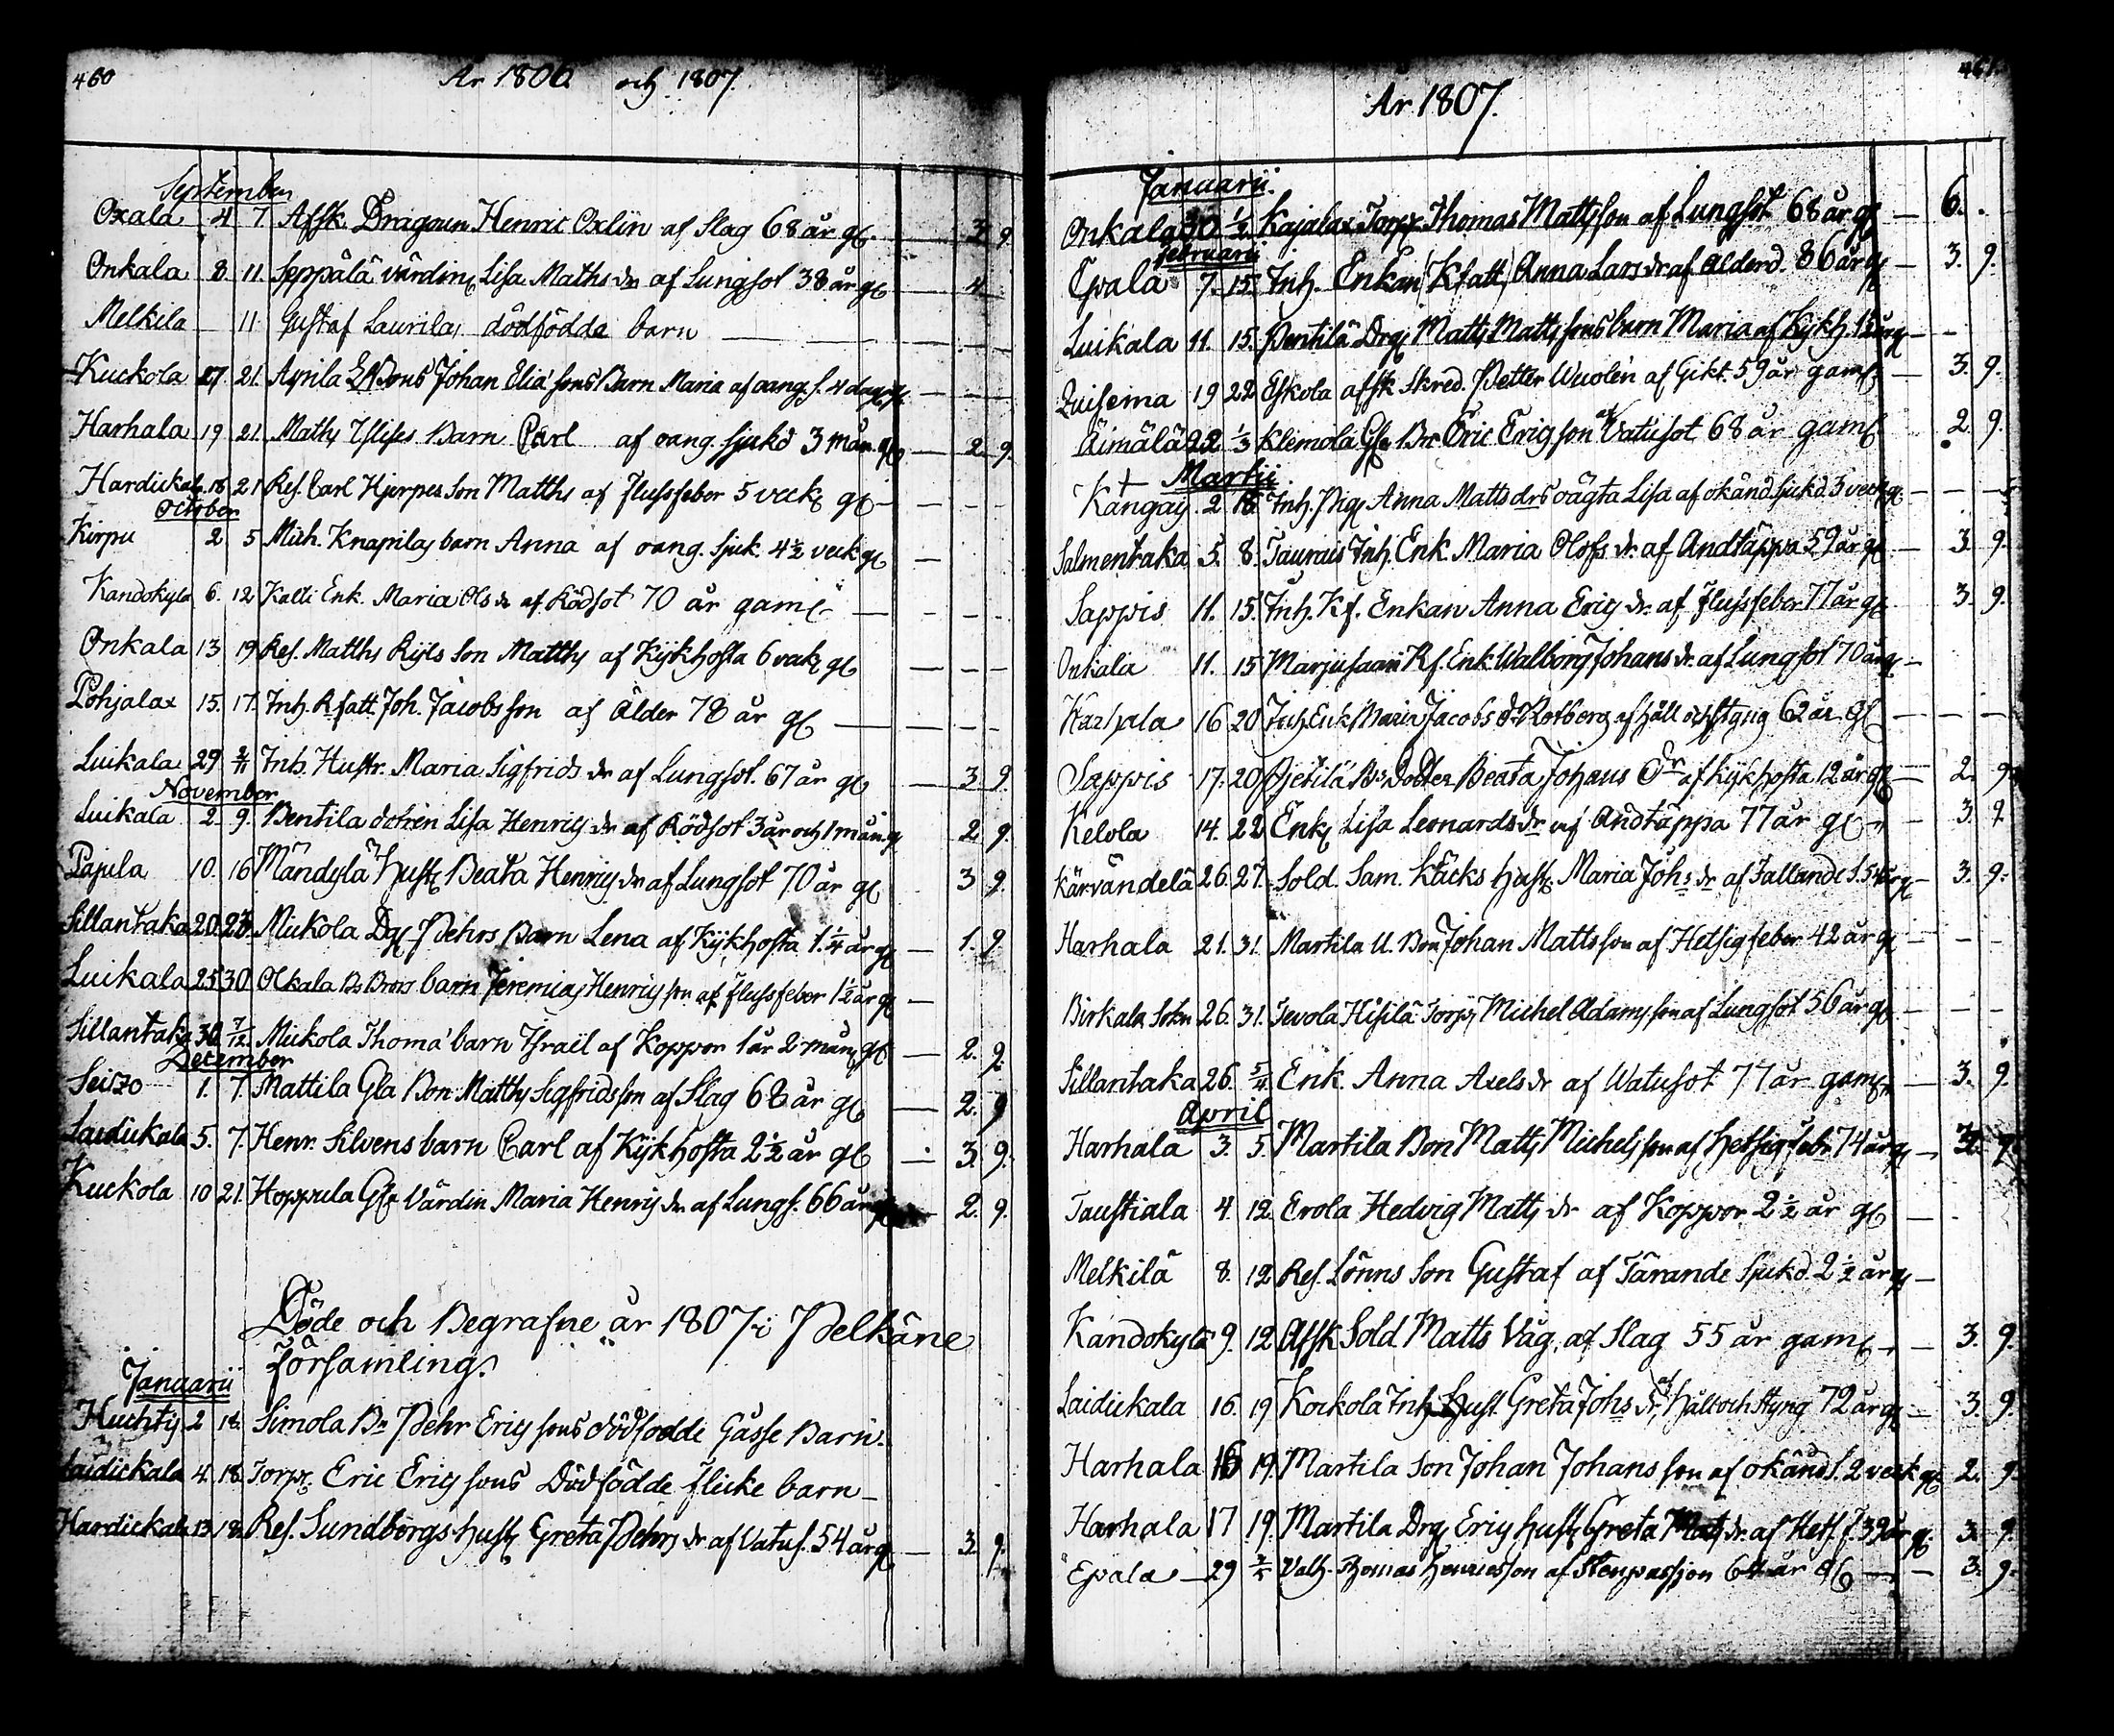 460
År 1806 och 1807.
September
Oxala 4 7 Afsk. Dragoun Henric Oxlin af Slag 68 år gl. — 3 9
Onkala 8. 11. Seppälä värdin Lisa Maths dr af Lungsot 38 år gl — 4
Melkila — 11 Gustaf Laurilas dödfödda barn —
Kuckola 17 21. Aprila Johan Elia sons Barn Maria af oang. s. 4 dag gl — — —
Harhala 19 21. Maths Ilises Barn Carl af oang. sjukd 3 mån. gl — 2. 9.
Hardickala 18 21 Res. Carl Hjerpes Son Matths af flussfeber 5 veck gl — — —
October
Kirpu 2 5 Mich. Knapilas barn Anna af oang. sjuk. 4½ veck gl —
Kandokyla 6. 12 Kalli Enk. Maria Ols dr af Rödsot 70 år gaml — — —
Onkala 13 19 Res. Matths Rijls Son Matths af Kykhosta 6 veck gl — — —
Pohjalax 15. 17. Inh. Rfatt. Joh. Jacobsson af Ålder 78 år gl — — —
Luikala 29 2/11 Inh. Hustr. Maria Sigfrids dr af Lungsot. 67 år gl — 3 9
November
Luikala 2. 9. Bentila dotren Lisa Henrics dr af Rödsot 3 år och 1 mån. g 2. 9.
Pajula 10. 16 Mändylä Hust Beata Henrics dr af Lungsot 70 år gl 3 9.
Sillantaka 20. 23. Mickola Dgl Pehrs Barn Lena af Kykhosta 1¼ år gl — 1. 9
Luikala 25 30. Olkala Bs Brors barn Jeremias Henrics son af flussfeber 1½ år gl —
Sillantaka 30. 7/12. Mickola Thoma barn Israil af Koppor 1 år 2 mån gl — 2. 9.
December
Seizo 1. 7. Mattila Gla Bon Matths Sigfridsson af Slag 68 år gl — 2. 9
Laidickala 5. 7. Henr. Silvens barn Carl af Kykhosta 2½ år gl — 3. 9.
Kuckola 10 21. Hoppula Gla Värdin Maria Henrics dr af Lungs. 66 år — 2. 9.
Döde och Begrafne år 1807 i Pelkäne
Församling.
Januarii
Huchtis 2 18. Simola Bn Pehr Erics sons dödfödde Gåsse Barn.
Laidickala 4. 18. Torp. Eric Erics sons Dödfödde flicke barn —
Hardickala 13. 18. Res. Sundbergs hust Greta Pehrs dr af Vatus. 54 år gl — 3 9.
461.
År 1807.
Januarii.
Onkala 30 1/2. Kajalax Torp. Thomas Mattsson af Lungsot 68 år gl — 6. .
Februarii
Epala 7. 15. Inh. Enkan Kfatt. Anna Lars dr af Ålderd. 86 år gl — 3. 9.
Luikala 11. 15. Pentilä Drgl Matts Mattssons barn Maria af Kykh. 1½ år gl — —
19 22 Eskola afsk Skred. Petter Wuolen af Gikt. 59 år gaml — 3. 9.
Äimälä 22 1/3 Klemola Gla Bn Eric Ericson af Vatusot 68 år gaml. 2. 9.
Martii
Kangas 2 15 Inh. Pig. Anna Matts drs oägta Lisa af okänd sjukd 3 veck gl — — —
Salmentaka 5. 8. Taurais Inh. Enk. Maria Olofs dr af Andtäppa 59 år gl — 3. 9.
Sappis 11. 15. Inh. Kf. Enkan Anna Erics dr af flussfeber 77 år gl 3. 9.
Onkala 11. 15 Marjusaari Rf. Enk. Walborg Johans dr af Lungsot 70 år gl —
16 20 Inh. Enk Maria Jacobs dr Rotberg af håll och styng 62 år. gl — — —
Sappis 17. 20 Pjetilä Bs Dotter Beata Johans Dr af Kykhosta 12 år gl — 2. 9.
Kelola 14. 22 Enk Lisa Leonards dr af Andtäppa 77 år gl — 3. 9.
Kärvändelä 26. 27. Sold. Sam. Käcks Hust. Maria Johs dr af Fallande s. 54 år gl — 3. 9.
Harhala 21. 31. Martila U. Bon Johan Mattsson af Hetsigfeber 42 år gl — — —
Birkala Sokn 26. 31. Tevola Hisilä Torp. Michel Adamsson af Lungsot 56 år gl — — —
Sillantaka 26. 5/4 Enk. Anna Axels dr af Watusot 77 år gaml — 3. 9.
April
Harhala 3. 5. Martila Bon Matts Michelsson af hetsigfebr 74 år gl — 3. 9.
Taustiala 4. 12. Erola Hedvig Matts dr af Koppor 2½ år gl — .
Melkilä 8. 12 Res. Lönns Son Gustaf af Tärande Sjukd. 2½ år gl —
Kandokylä 9. 12 Afsk Sold Matts Våg. af Slag 55 år gaml — 3. 9.
Laidickala 16. 19 Kockola Inh. Hust. Greta Johs dr af Håll och Styng 72 år gl — 3. 9.
Harhala 16 19. Martila Son Johan Johansson af okänd s. 2 veck gl 2. 9
Harhala 17 19. Martila Drg Erics hust Greta Matts dr. af Hets. f. 39 år gl. 3. 9.
Epala — 29 Valh. Thomas Henricsson af Stenpassion 64 år gl — — 3. 9.